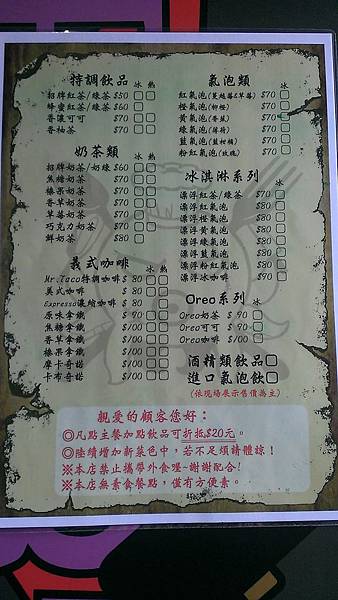 特調飲品 冰 熱
招牌紅茶/綠茶 $50
蜂蜜紅茶/綠茶 $60
香濃可可 $70
香柚茶 $70
奶茶類 冰 熱
招牌奶茶/奶綠 $60
焦糖奶茶 $70
榛果奶茶 $70
香草奶茶 $70
草莓奶茶 $70
巧克力奶茶 $70
鮮奶茶 $80
義式咖啡 冰 熱
Mr.Taco特調咖啡 $ 80
美式咖啡 $ 80
Espresso濃縮咖啡 $ 80
原味拿鐵 $/00
焦糖拿鐵 $/00
香草拿鐵 $/00
榛果拿鐵 $/00
摩卡奇諾 $/00
卡布奇諾 $/00
氣泡類 冰
紅氣泡(蔓越莓&草莓) $70
橙氣泡(柳橙) $70
黃氣泡(香蕉) $70
綠氣泡(薄荷) $70
藍氣泡(藍柑橘) $70
粉紅氣泡(玫瑰) $70
冰淇淋系列 冰
漂浮紅茶/綠茶 $70
漂浮紅氣泡 $80
漂浮橙氣泡 $80
漂浮黃氣泡 $80
漂浮綠氣泡 $80
漂浮藍氣泡 $80
漂浮粉紅氣泡 $80
漂浮冰咖啡 $90
Oreo系列 冰
Oreo奶茶 $ 90
Oreo可可 $ 90
Oreo咖啡 $/00
酒精類飲品
進口氣泡飲
(依現場展示售價為主)
親愛的顧客您好：
◎凡點主餐加點飲品可折抵$20元。
◎陸續增加新菜色中，若不足煩請體諒！
※本店禁止攜帶外食喔~謝謝配合！
※本店無素食餐點，僅有方便素。